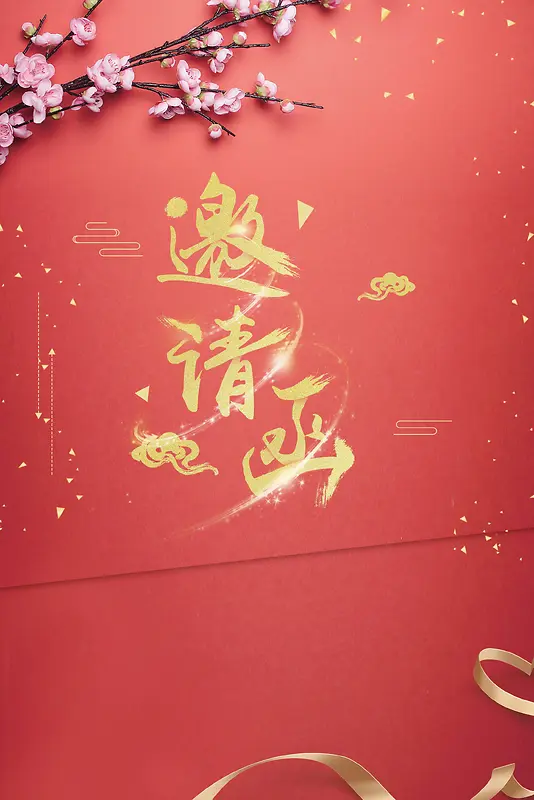 邀
请
函